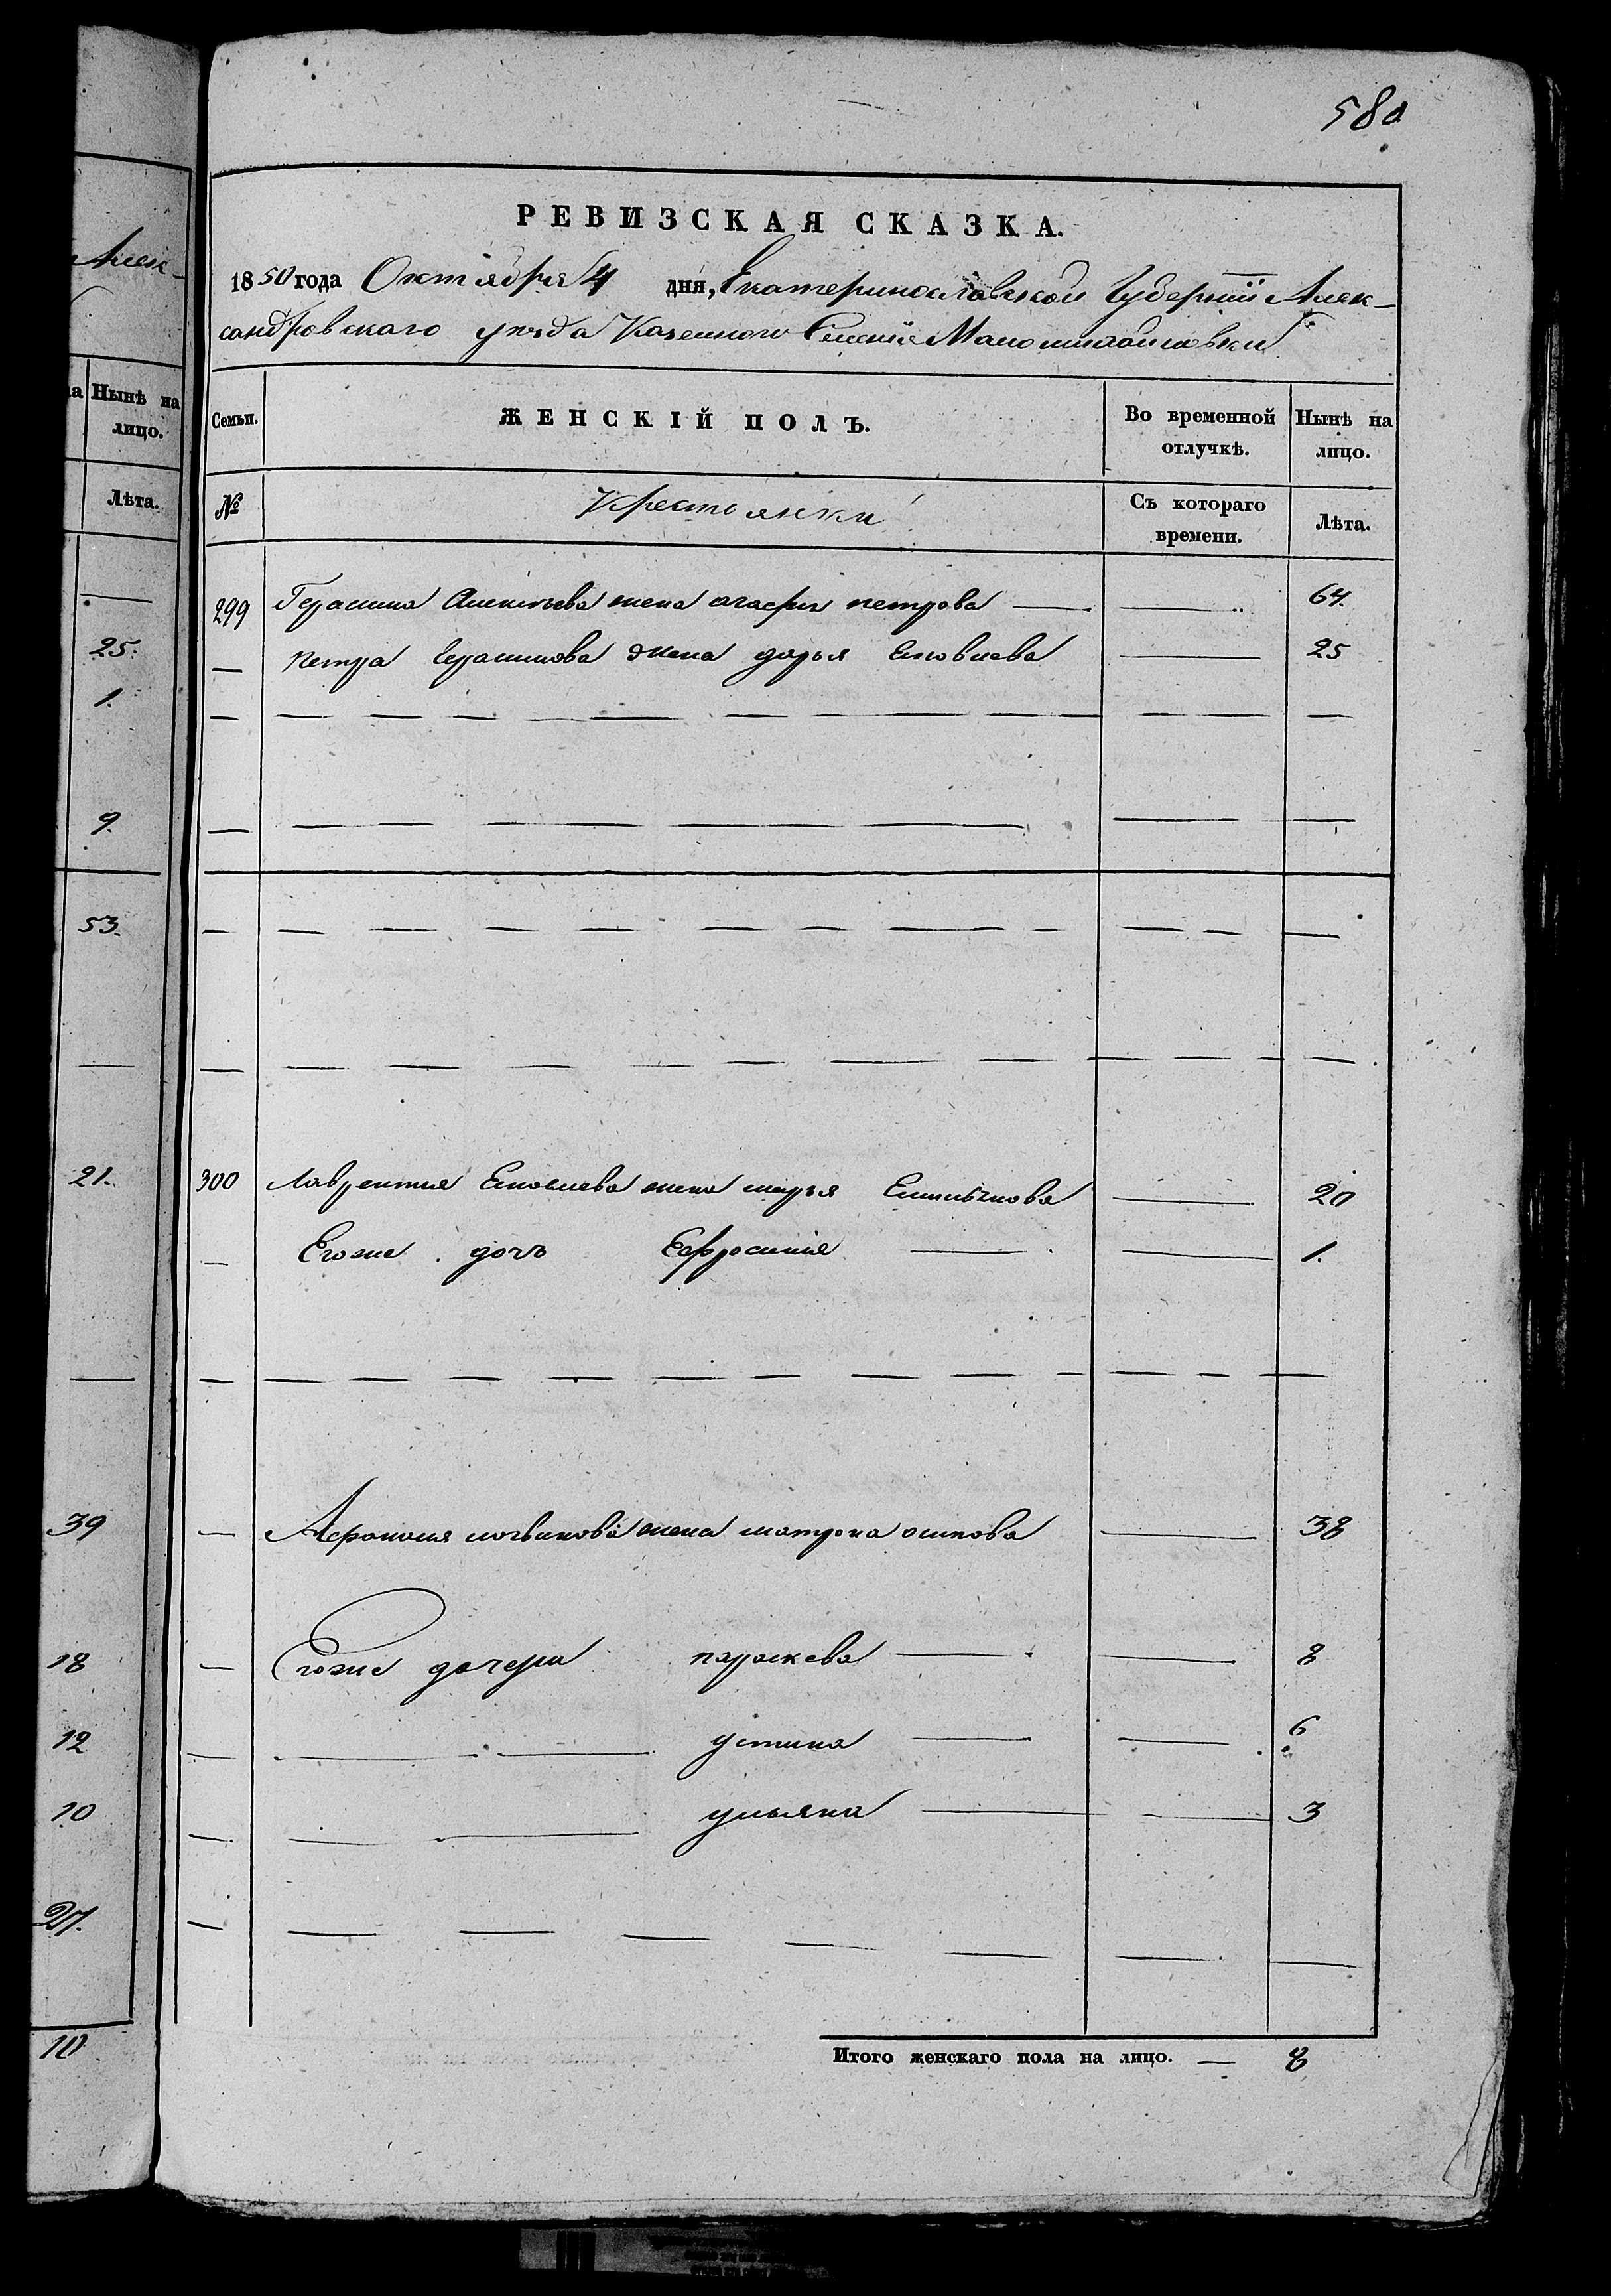 580
РЕВИЗСКАЯ СКАЗКА.
1850 года Октября 4 дня, Екатеринославской Губернiи Алек-
сандровскаго уезда Казеннаго Селенiя Маломихайловки
Семьи. ЖЕНСКІЙ ПОЛЪ. Во временной отлучкѣ. Нынѣ на лицо.
№ Крестьянки Съ котораго времени. Лѣта.
299 Герасима Алексѣева жена агафия петрова 64.
петра Герасимова жена дарья Яковлева 25
300 Лаврентия Яковлева жена марья 20
Егоже дочь Ефросиния 1.
Афанасия жена матрона осипова 38
Егоже дочери параскева 8
устина 6
ульяна 3
Итого женскаго пола на лицо. 8
Алек-
на Нынѣ на
лицо.
Лѣта.
25.
1.
9.
53.
21.
39
18
12
10
27.
10